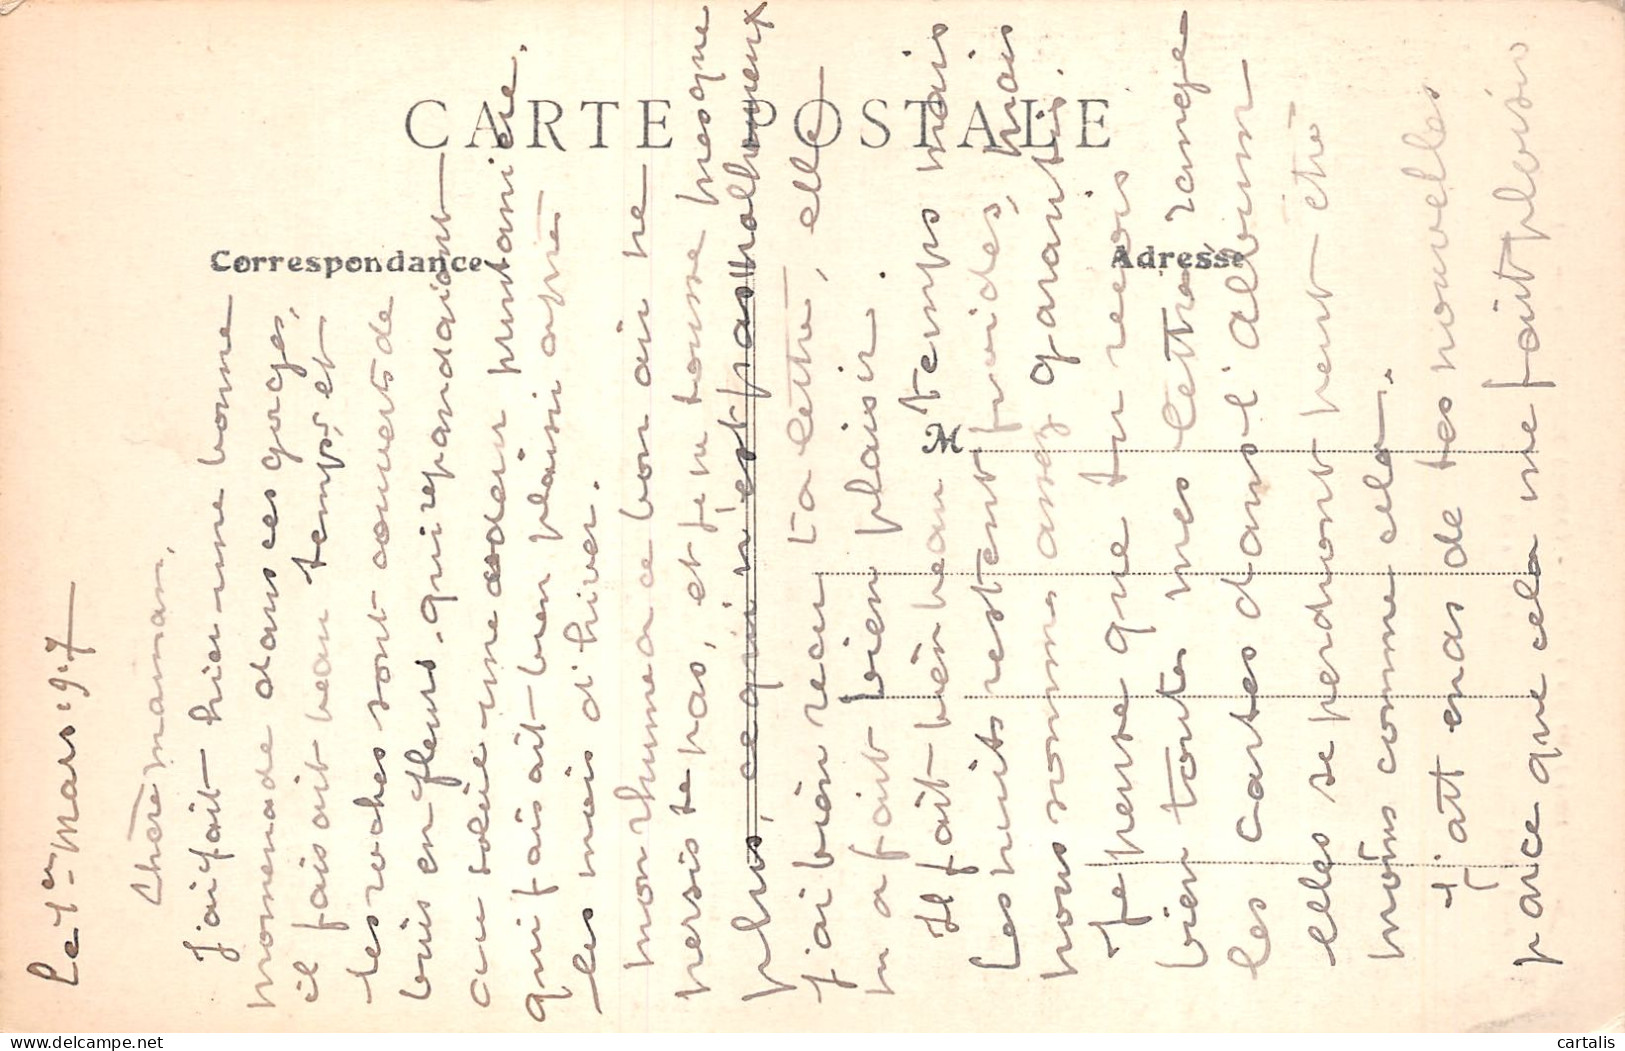 CARTE POSTALE
Correspondance
Adresse
M
Le 1er Mars 1917
Chère maman,
J'ai fait hier une bonne
promenade dans ces gorges,
il faisait beau temps, et
les roches sont couverts de
buis en fleurs, qui repandaient
au soleil une odeur printanière.
qui faisait bien plaisir après
les mois d'hiver.
mon rhume a ce bon air ne
persiste pas, et je ne tousse presque
plus, ce qui n'est pas malheureux
J'ai bien recu ta lettre, elle
m'a fait bien plaisir.
Il fait bien beau temps mais
Les nuits restent froides, mais
nous sommes assez garantis.
Je pense que tu recois
bien toutes mes lettres range
les cartes dans l'album
elles se perdront peut être
moins comme cela.
J'attends de tes nouvelles
parce que cela me fait plaisir
cartalis